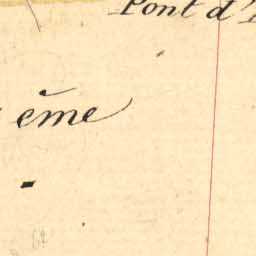 Pont d'
ème